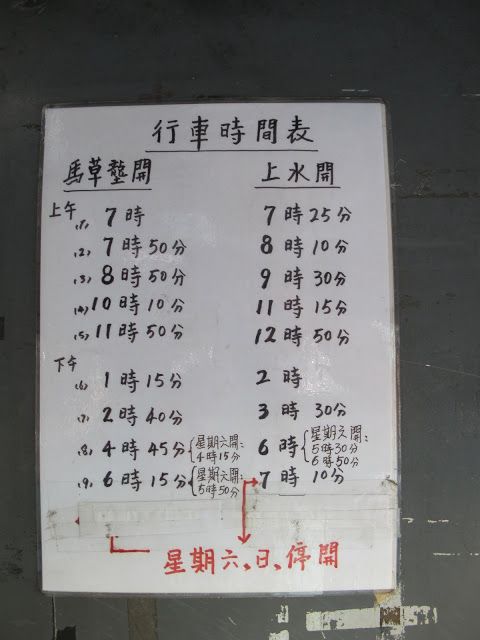 行車時間表
馬草壟開 上水開
上午
(1) 7時 7時25分
(2) 7時50分 8時10分
(3) 8時50分 9時30分
(4) 10時10分 11時15分
(5) 11時50分 12時50分
下午
(6) 1時15分 2時
(7) 2時40分 3時30分
(8) 4時45分 {星期六開: 4時15分 6時 {星期六開: 5時30分 6時50分
(9) 6時15分 {星期六開: 5時50分 7時10分
星期六、日、停開